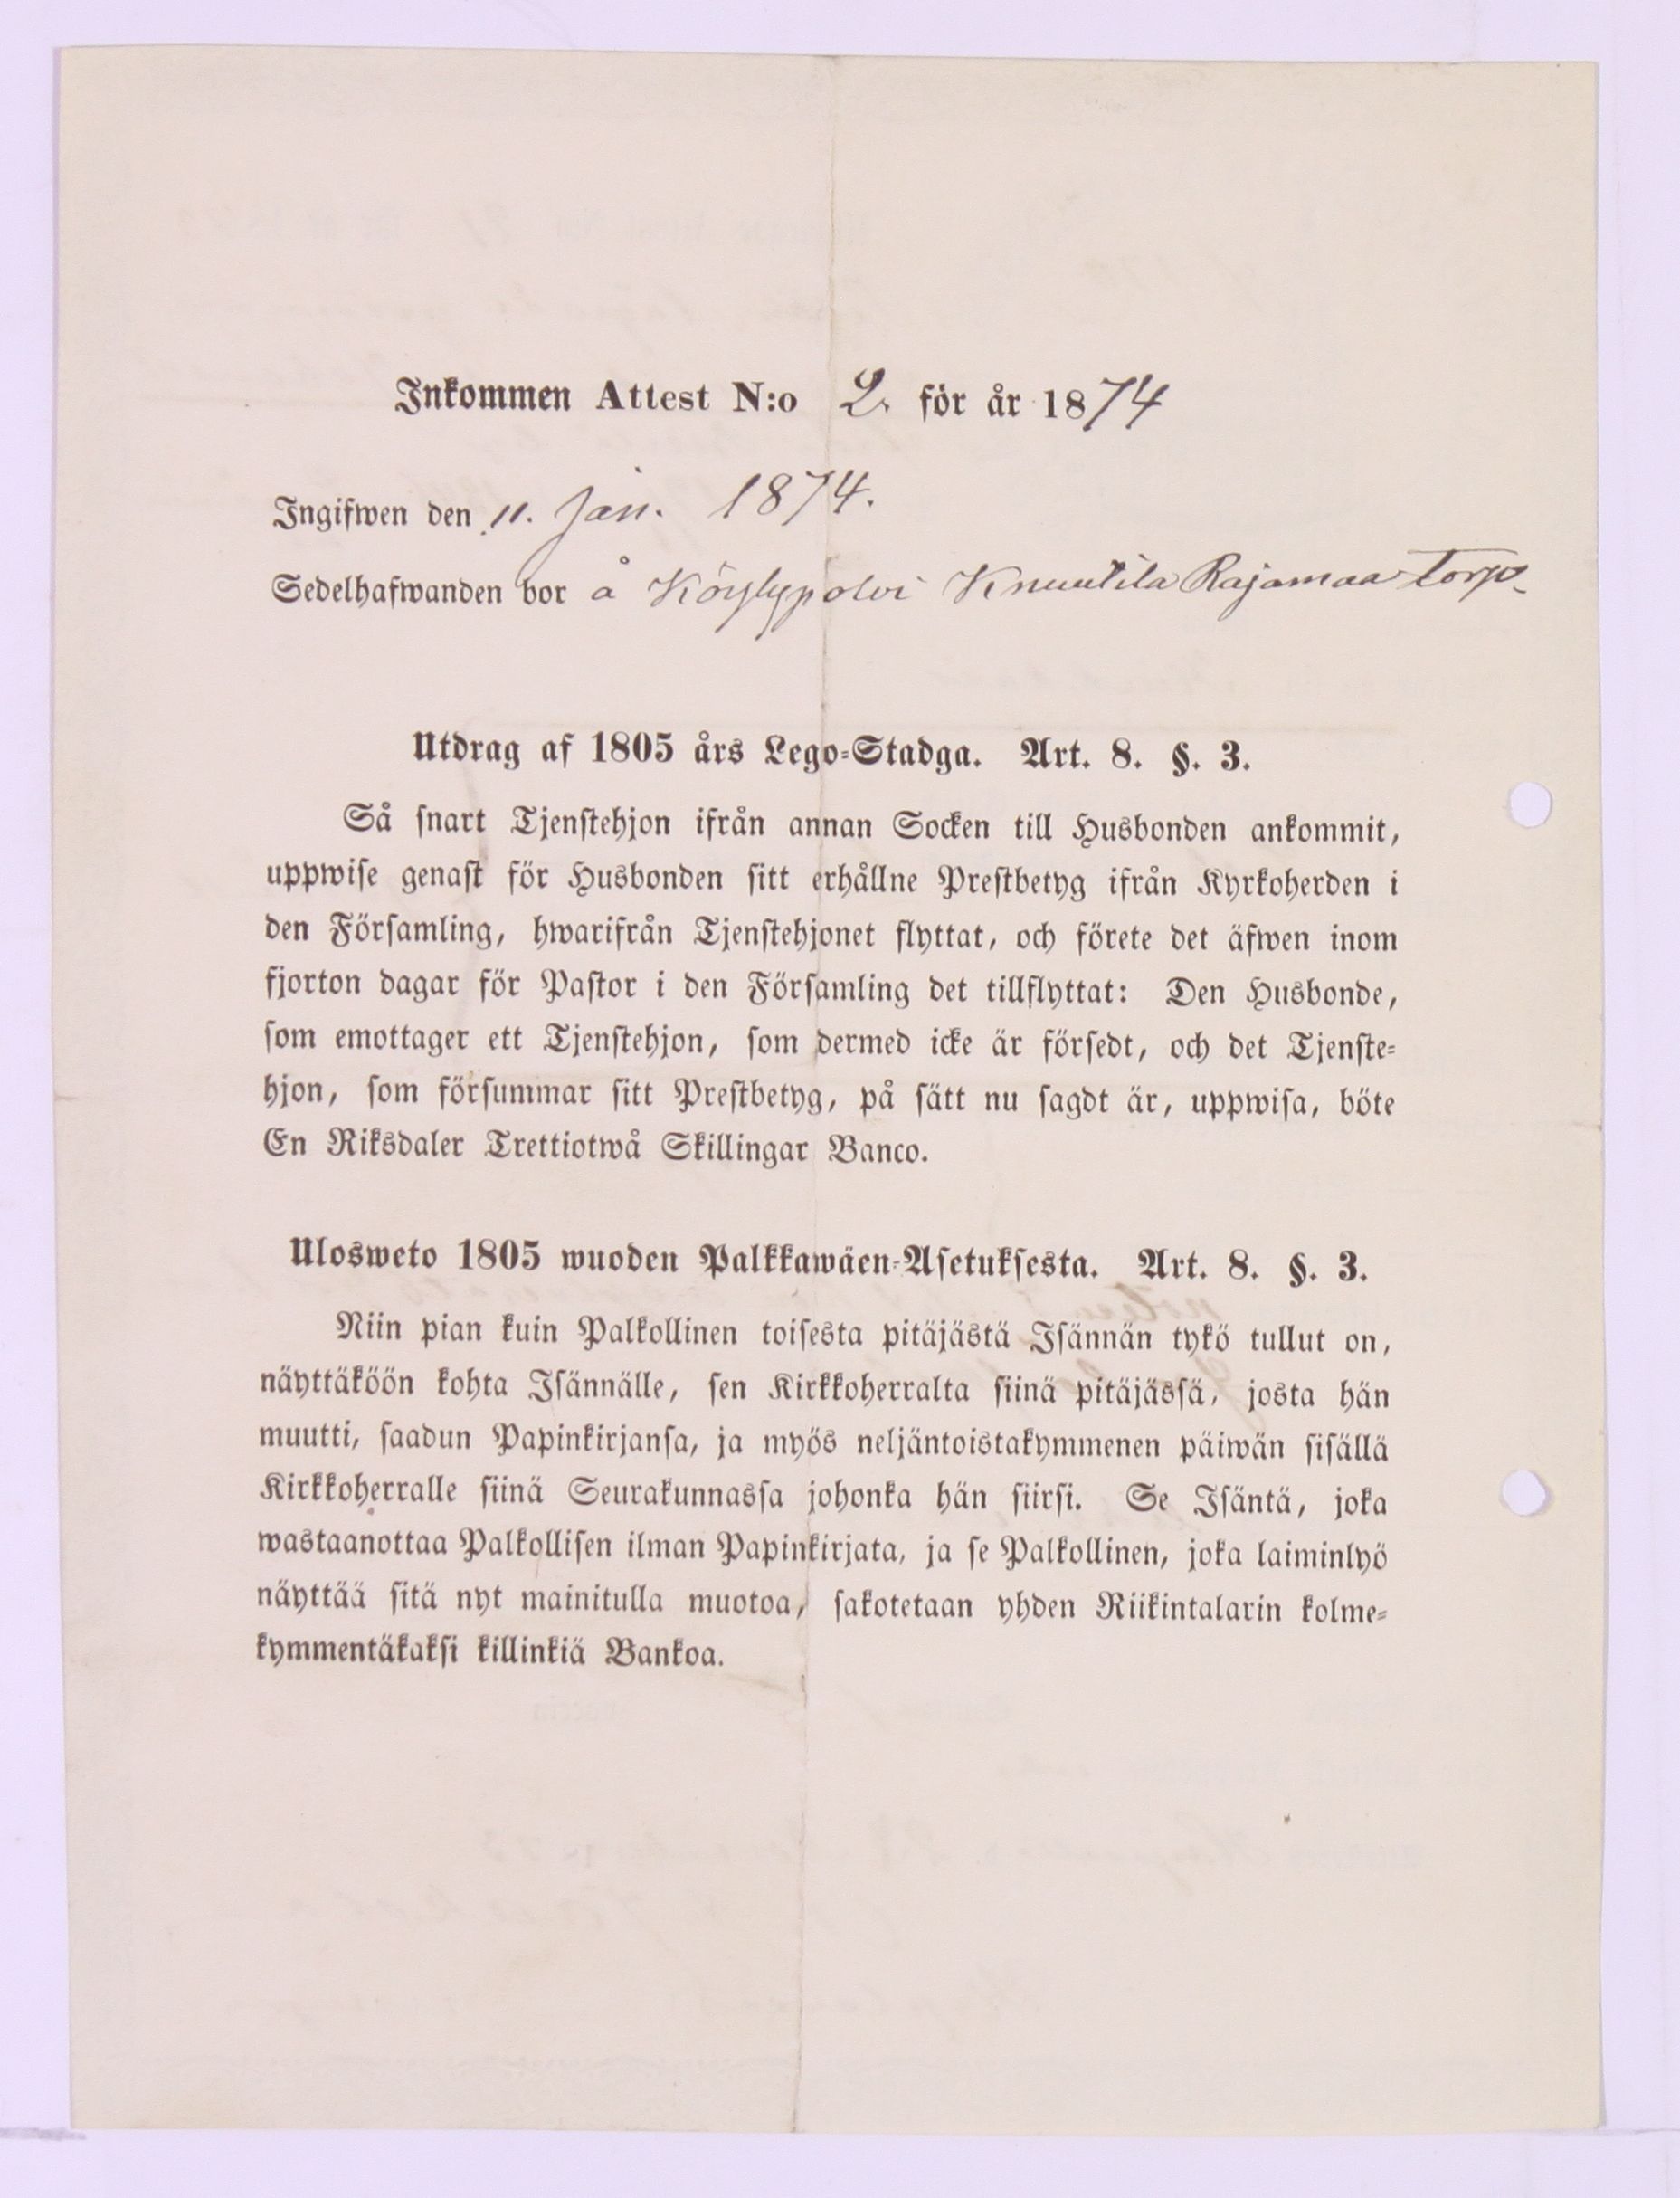 Inkommen Attest N:o 2. för år 1874
Ingifwen den 11. Jan. 1874.
Sedelhafwanden bor å Köylypolvi Knuutila Rajamaa torp
Utdrag af 1805 års Lego-Stadga. Art. 8. §. 3.
Så snart Tjenstehjon ifrån annan Socken till Husbonden ankommit,
uppwise genast för Husbonden sitt erhållne Prestbetyg ifrån Kyrkoherden i
den Församling, hwarifrån Tjenstehjonet flyttat, och förete det äfwen inom
fjorton dagar för Pastor i den Församling det tillflyttat: Den Husbonde,
som emottager ett Tjenstehjon, som dermed icke är försedt, och det Tjenste-
hjon, som försummar sitt Prestbetyg, på sätt nu sagdt är, uppwisa, böte
En Riksdaler Trettiotwå Skillingar Banco.
Ulosweto 1805 wuoden Palkkawäen-Asetuksesta. Art. 8. §. 3.
Niin pian kuin Palkollinen toisesta pitäjästä Isännän tykö tullut on,
näyttäköön kohta Isännälle, sen Kirkkoherralta siinä pitäjässä, josta hän
muutti, saadun Papinkirjansa, ja myös neljäntoistakymmenen päiwän sisällä
Kirkkoherralle siinä Seurakunnassa johonka hän siirsi. Se Isäntä, joka
wastaanottaa Palkollisen ilman Papinkirjata, ja se Palkollinen, joka laiminlyö
näyttää sitä nyt mainitulla muotoa, sakotetaan yhden Riikintalarin kolme-
kymmentäkaksi killinkiä Bankoa.